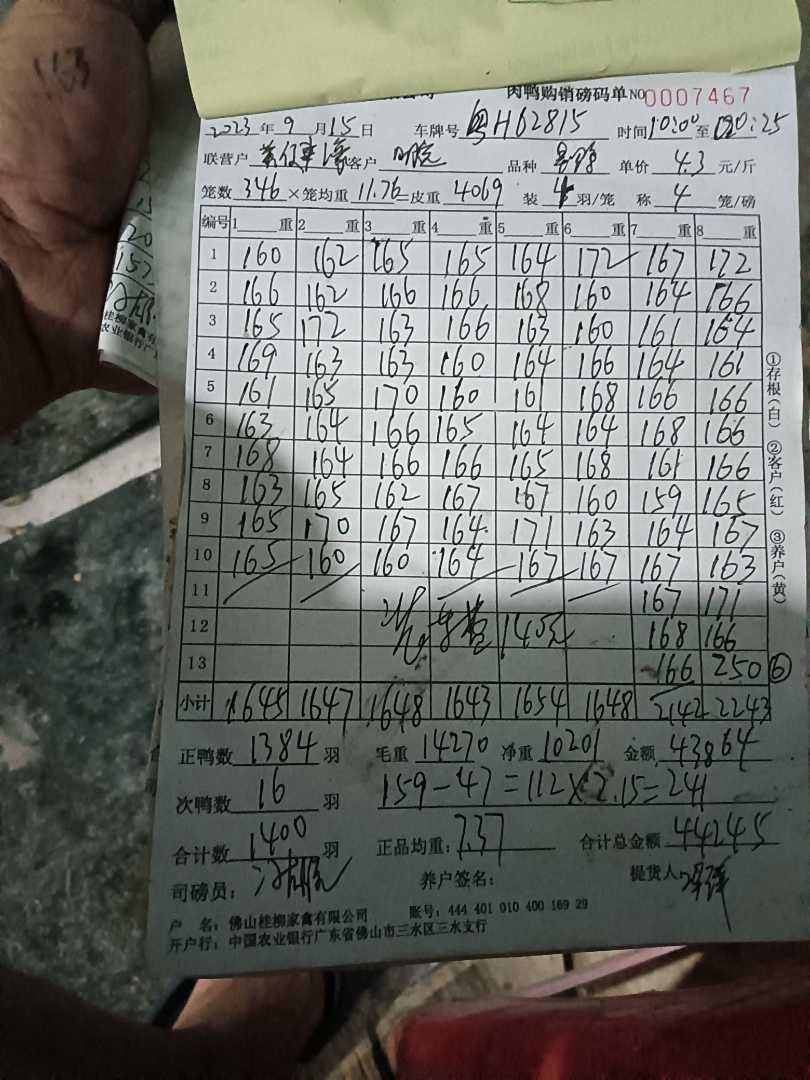 163
肉鸭购销磅码单 NO 0007467
2023年9月15日 车牌号 粤H62815 时间10:00至 :25
联营户 客户 品种 单价 4.3 元/斤
笼数 346 ×笼均重 11.76 皮重 4069 装 4 羽/笼 称 4 笼/磅
编号 1 重 2 重 3 重 4 重 5 重 6 重 7 重 8 重
1 160 162 165 165 164 172 167 172
2 166 162 166 166 168 160 164 166
3 165 172 163 166 163 160 161 164
4 169 163 163 160 164 166 164 161
5 161 165 170 160 161 168 166 166
6 163 164 166 165 164 164 168 166
7 168 164 166 166 165 168 161 166
8 163 165 162 167 167 160 159 165
9 165 170 167 164 171 163 164 167
10 165 160 160 164 167 167 167 163
11 167 171
12 140元 168 166
13 166 250 ⑥
小计 1645 1647 1648 1643 1654 1648 2142 2243
正鸭数 1384 羽 毛重 14270 净重 10201 金额 43864
次鸭数 16 羽 159-47=112×2.15=241
合计数 1400 羽 正品均重: 7.37 合计总金额 44245
司磅员: 养户签名: 提货人
户 名: 佛山桂柳家禽有限公司 账号: 444 401 010 400 169 29
开户行: 中国农业银行广东省佛山市三水区三水支行
①存根(白) ②客户(红) ③养户(黄)
20
157
桂柳家禽有限
农业银行广